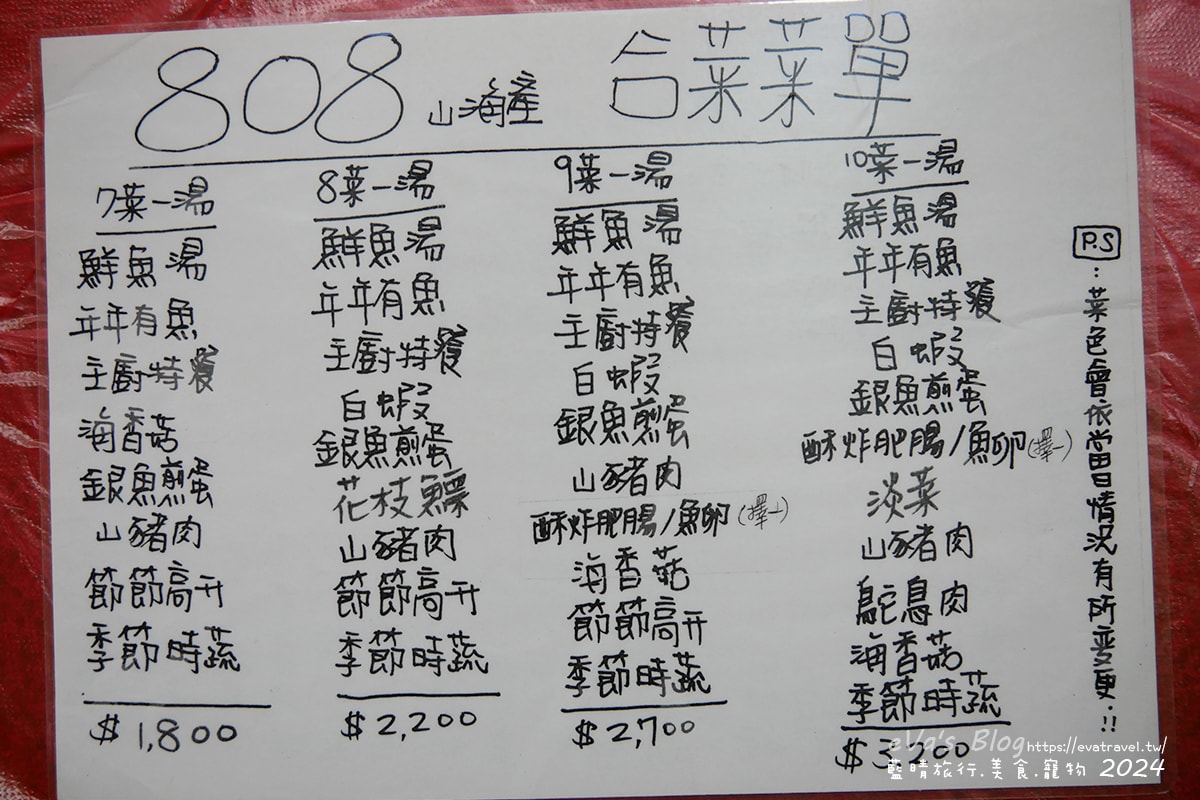 808 山海產 合菜菜單
7菜一湯
鮮魚湯
年年有魚
主廚特餐
海香菇
銀魚煎蛋
山豬肉
節節高升
季節時蔬
$1,800
8菜一湯
鮮魚湯
年年有魚
主廚特餐
白蝦
銀魚煎蛋
花枝鱻
山豬肉
節節高升
季節時蔬
$2,200
9菜一湯
鮮魚湯
年年有魚
主廚特餐
白蝦
銀魚煎蛋
山豬肉
酥炸肥腸/魚卵(擇一)
海香菇
節節高升
季節時蔬
$2,700
10菜一湯
鮮魚湯
年年有魚
主廚特餐
白蝦
銀魚煎蛋
酥炸肥腸/魚卵(擇一)
淡菜
山豬肉
鴕鳥肉
海香菇
季節時蔬
$3,200
P.S:菜色會依當日情況有所變更.!!
eVa's Blog https://evatravel.tw/
藍晴旅行.美食.寵物 2024